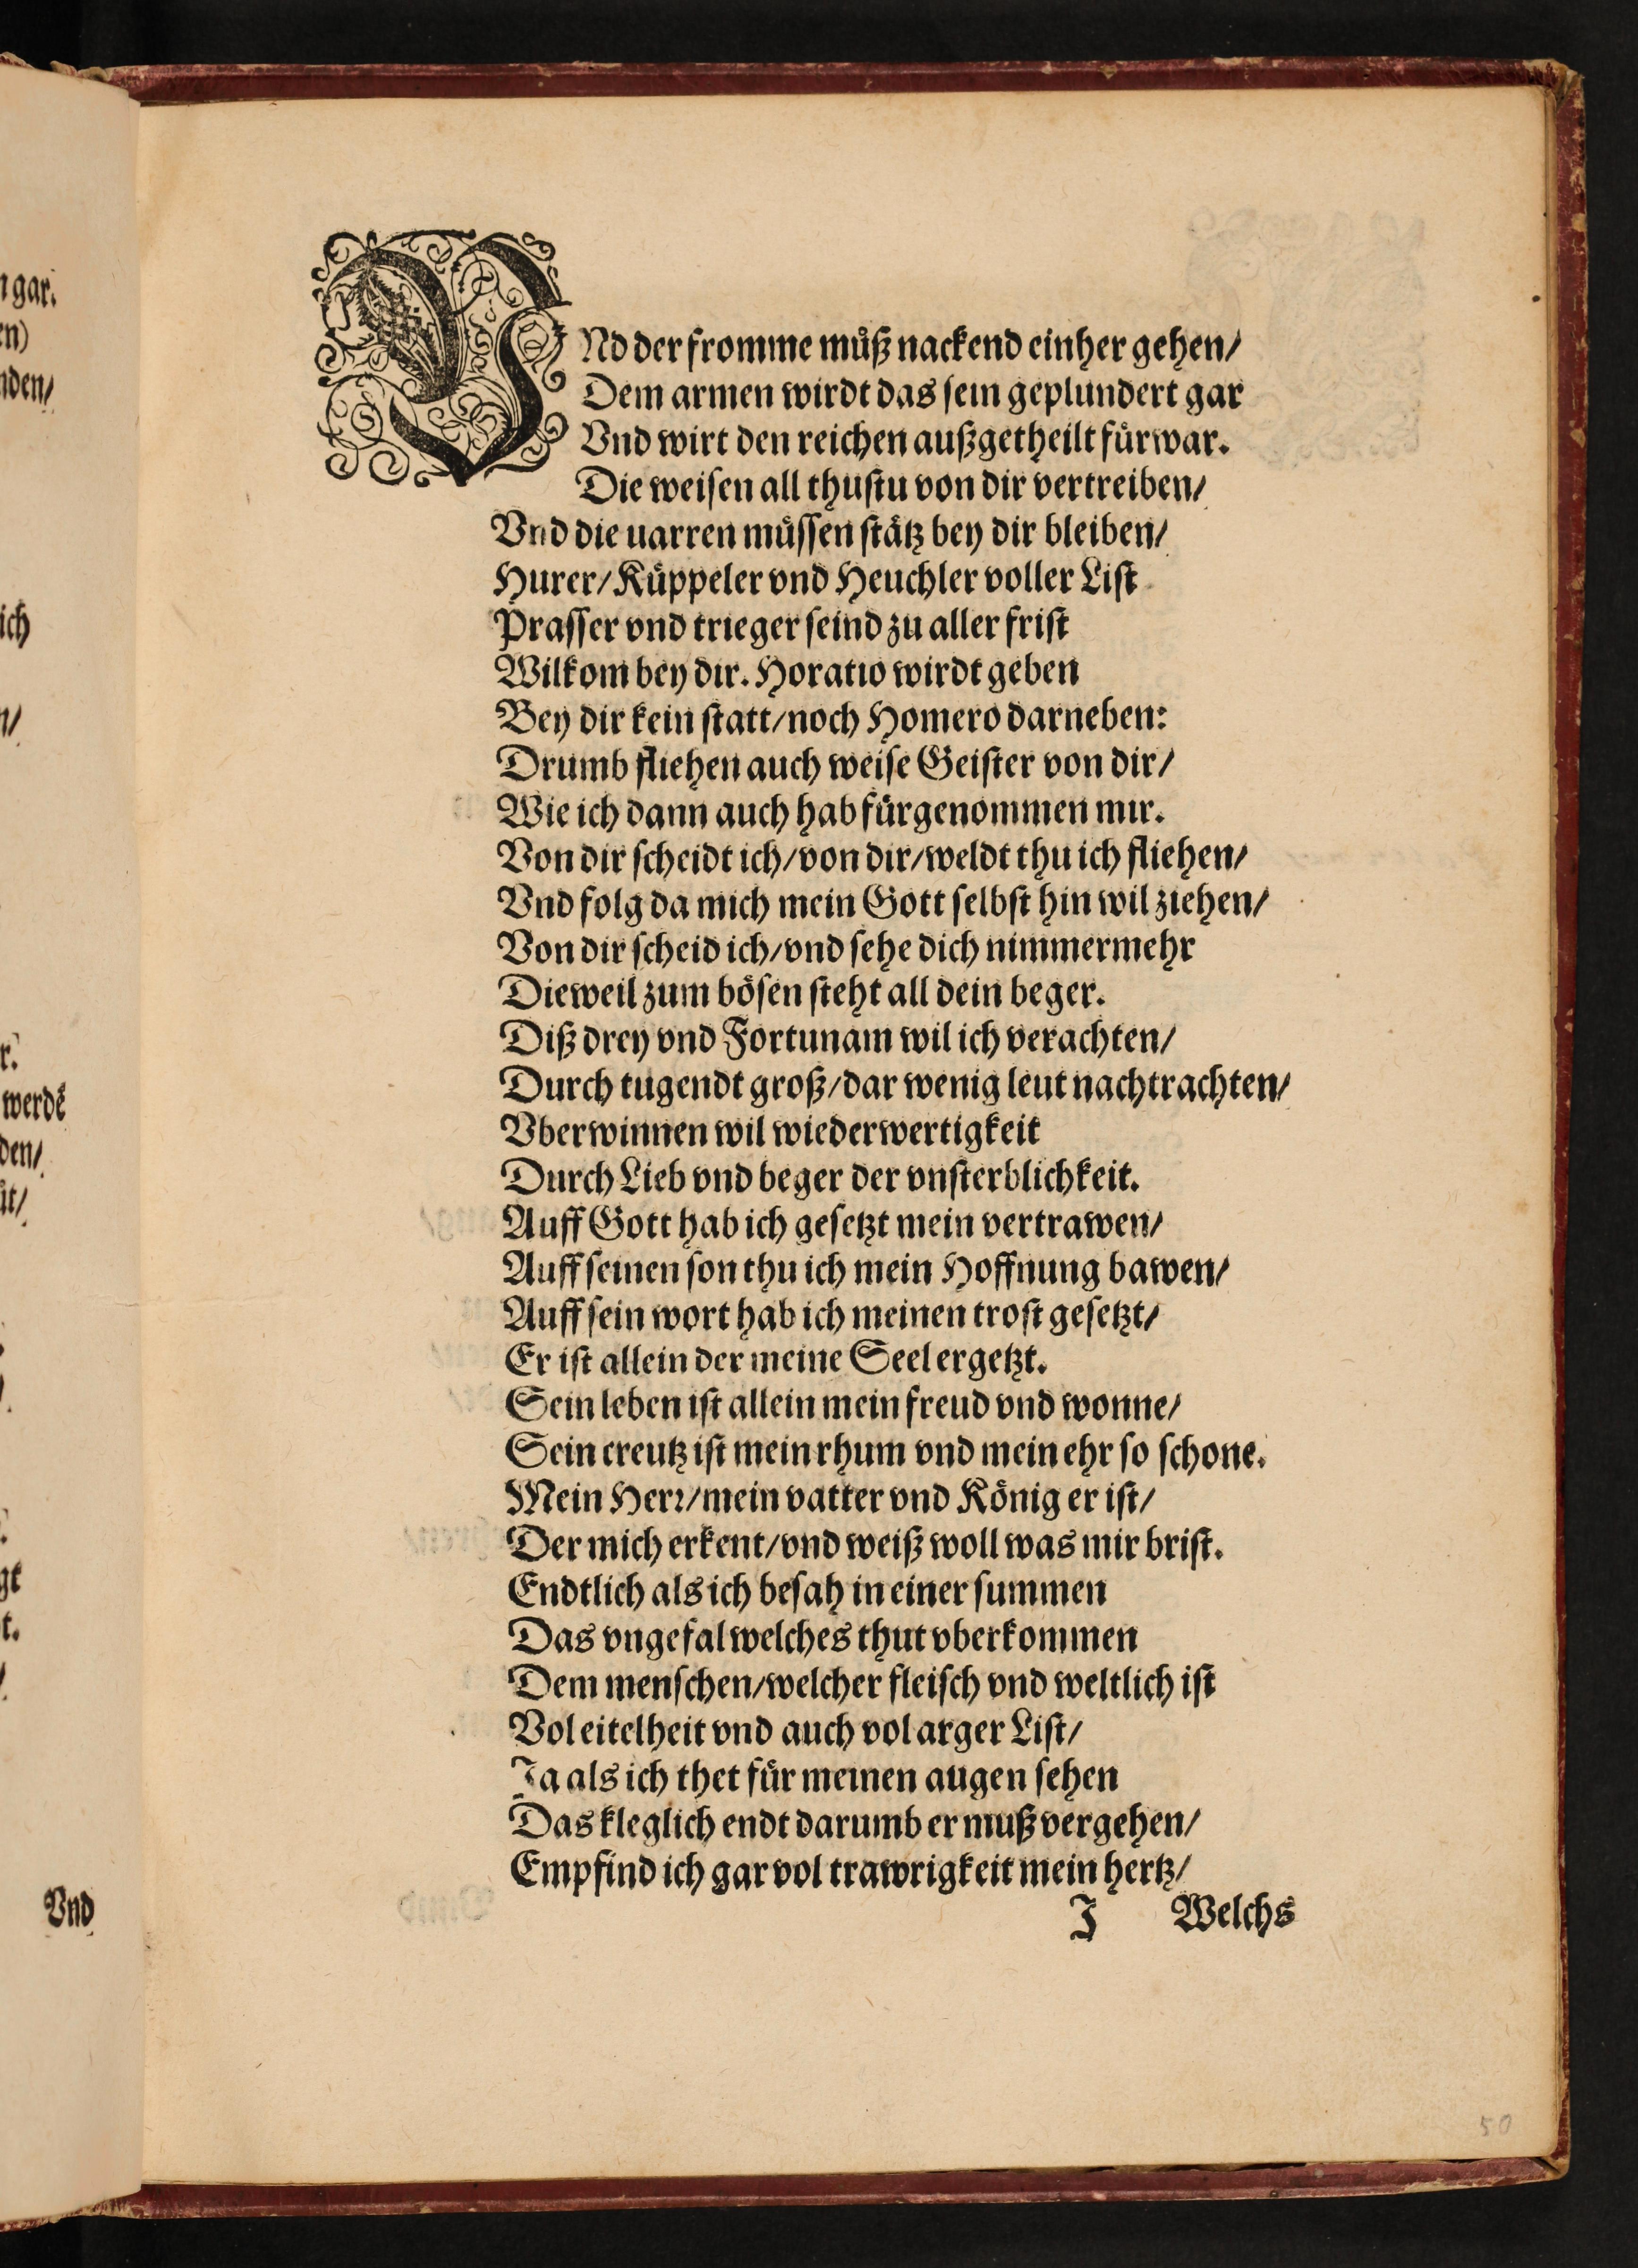 VNd der fromme muͤß nackend einher gehen/
Dem armen wirdt das sein geplundert gar
Vnd wirt den reichen außgetheilt fürwar.
Die weisen all thustu von dir vertreiben/
Vnd die uarren müssen stätz bey dir bleiben/
Hurer/Küppeler vnd Heuchler voller List
Prasser vnd trieger seind zu aller frist
Wilkom bey dir. Horatio wirdt geben
Bey dir kein statt/noch Homero darneben:
Drumb fliehen auch weise Geister von dir/
Wie ich dann auch hab fürgenommen mir.
Von dir scheidt ich/von dir/weldt thu ich fliehen/
Vnd folg da mich mein Gott selbst hin wil ziehen/
Von dir scheid ich/vnd sehe dich nimmermehr
Dieweil zum bösen steht all dein beger.
Diß drey vnd Fortunam wil ich verachten/
Durch tugendt groß/dar wenig leut nachtrachten/
Vberwinnen wil wiederwertigkeit
Durch Lieb vnd beger der vnsterblichkeit.
Auff Gott hab ich gesetzt mein vertrawen/
Auff seinen son thu ich mein Hoffnung bawen/
Auff sein wort hab ich meinen trost gesetzt/
Er ist allein der meine Seel ergetzt.
Sein leben ist allein mein freud vnd wonne/
Sein creutz ist mein rhum vnd mein ehr so schone.
Mein Herr/mein vatter vnd König er ist/
Der mich erkent/vnd weiß woll was mir brist.
Endtlich als ich besah in einer summen
Das vngefal welches thut vberkommen
Dem menschen/welcher fleisch vnd weltlich ist
Vol eitelheit vnd auch vol arger List/
Ja als ich thet für meinen augen sehen
Das kleglich endt darumb er muß vergehen/
Empfind ich gar vol trawrigkeit mein hertz/
J Welchs
gar.
en)
nden/
ich
werdẽ
den/
Vnd
50